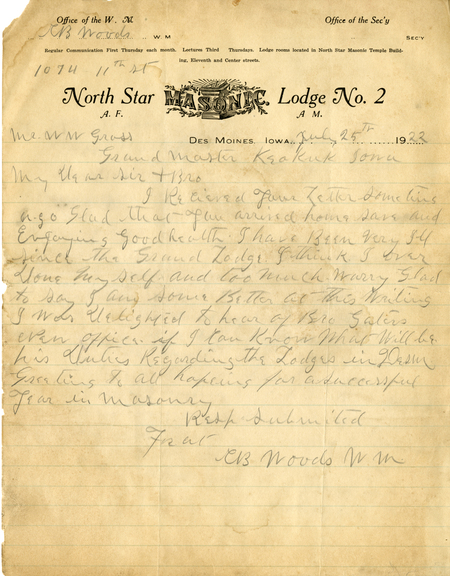 Office of the W. M. Office of the Sec'y
EB Woods W. M SEC'Y
Regular Communication First Thursday each month. Lectures Third Thursdays. Lodge rooms located in North Star Masonic Temple Build-
ing, Eleventh and Center streets.
1074 11th St
North Star MASONIC Lodge No. 2
A. F. A M.
DES MOINES, IOWA, July 25th 1922
Mr. W W Gross
Grand Master Keokuk Iowa
My Dear Sir + Bro
I Recieved your Letter Sometime
ago Glad that you arrived home save and
Enjoying Good health I have Been very Ill
since the Grand Lodge I think I over
Done my self and too much worry Glad
to say I am some Better at this writing
I was Delighted to hear of Bro
office if I Can Know What Will be
his Duties Regarding the Lodges in Desm
Greeting to all hopeing for a successful
Year in Masonry
Resp Submitted
Frat
EB Woods W M